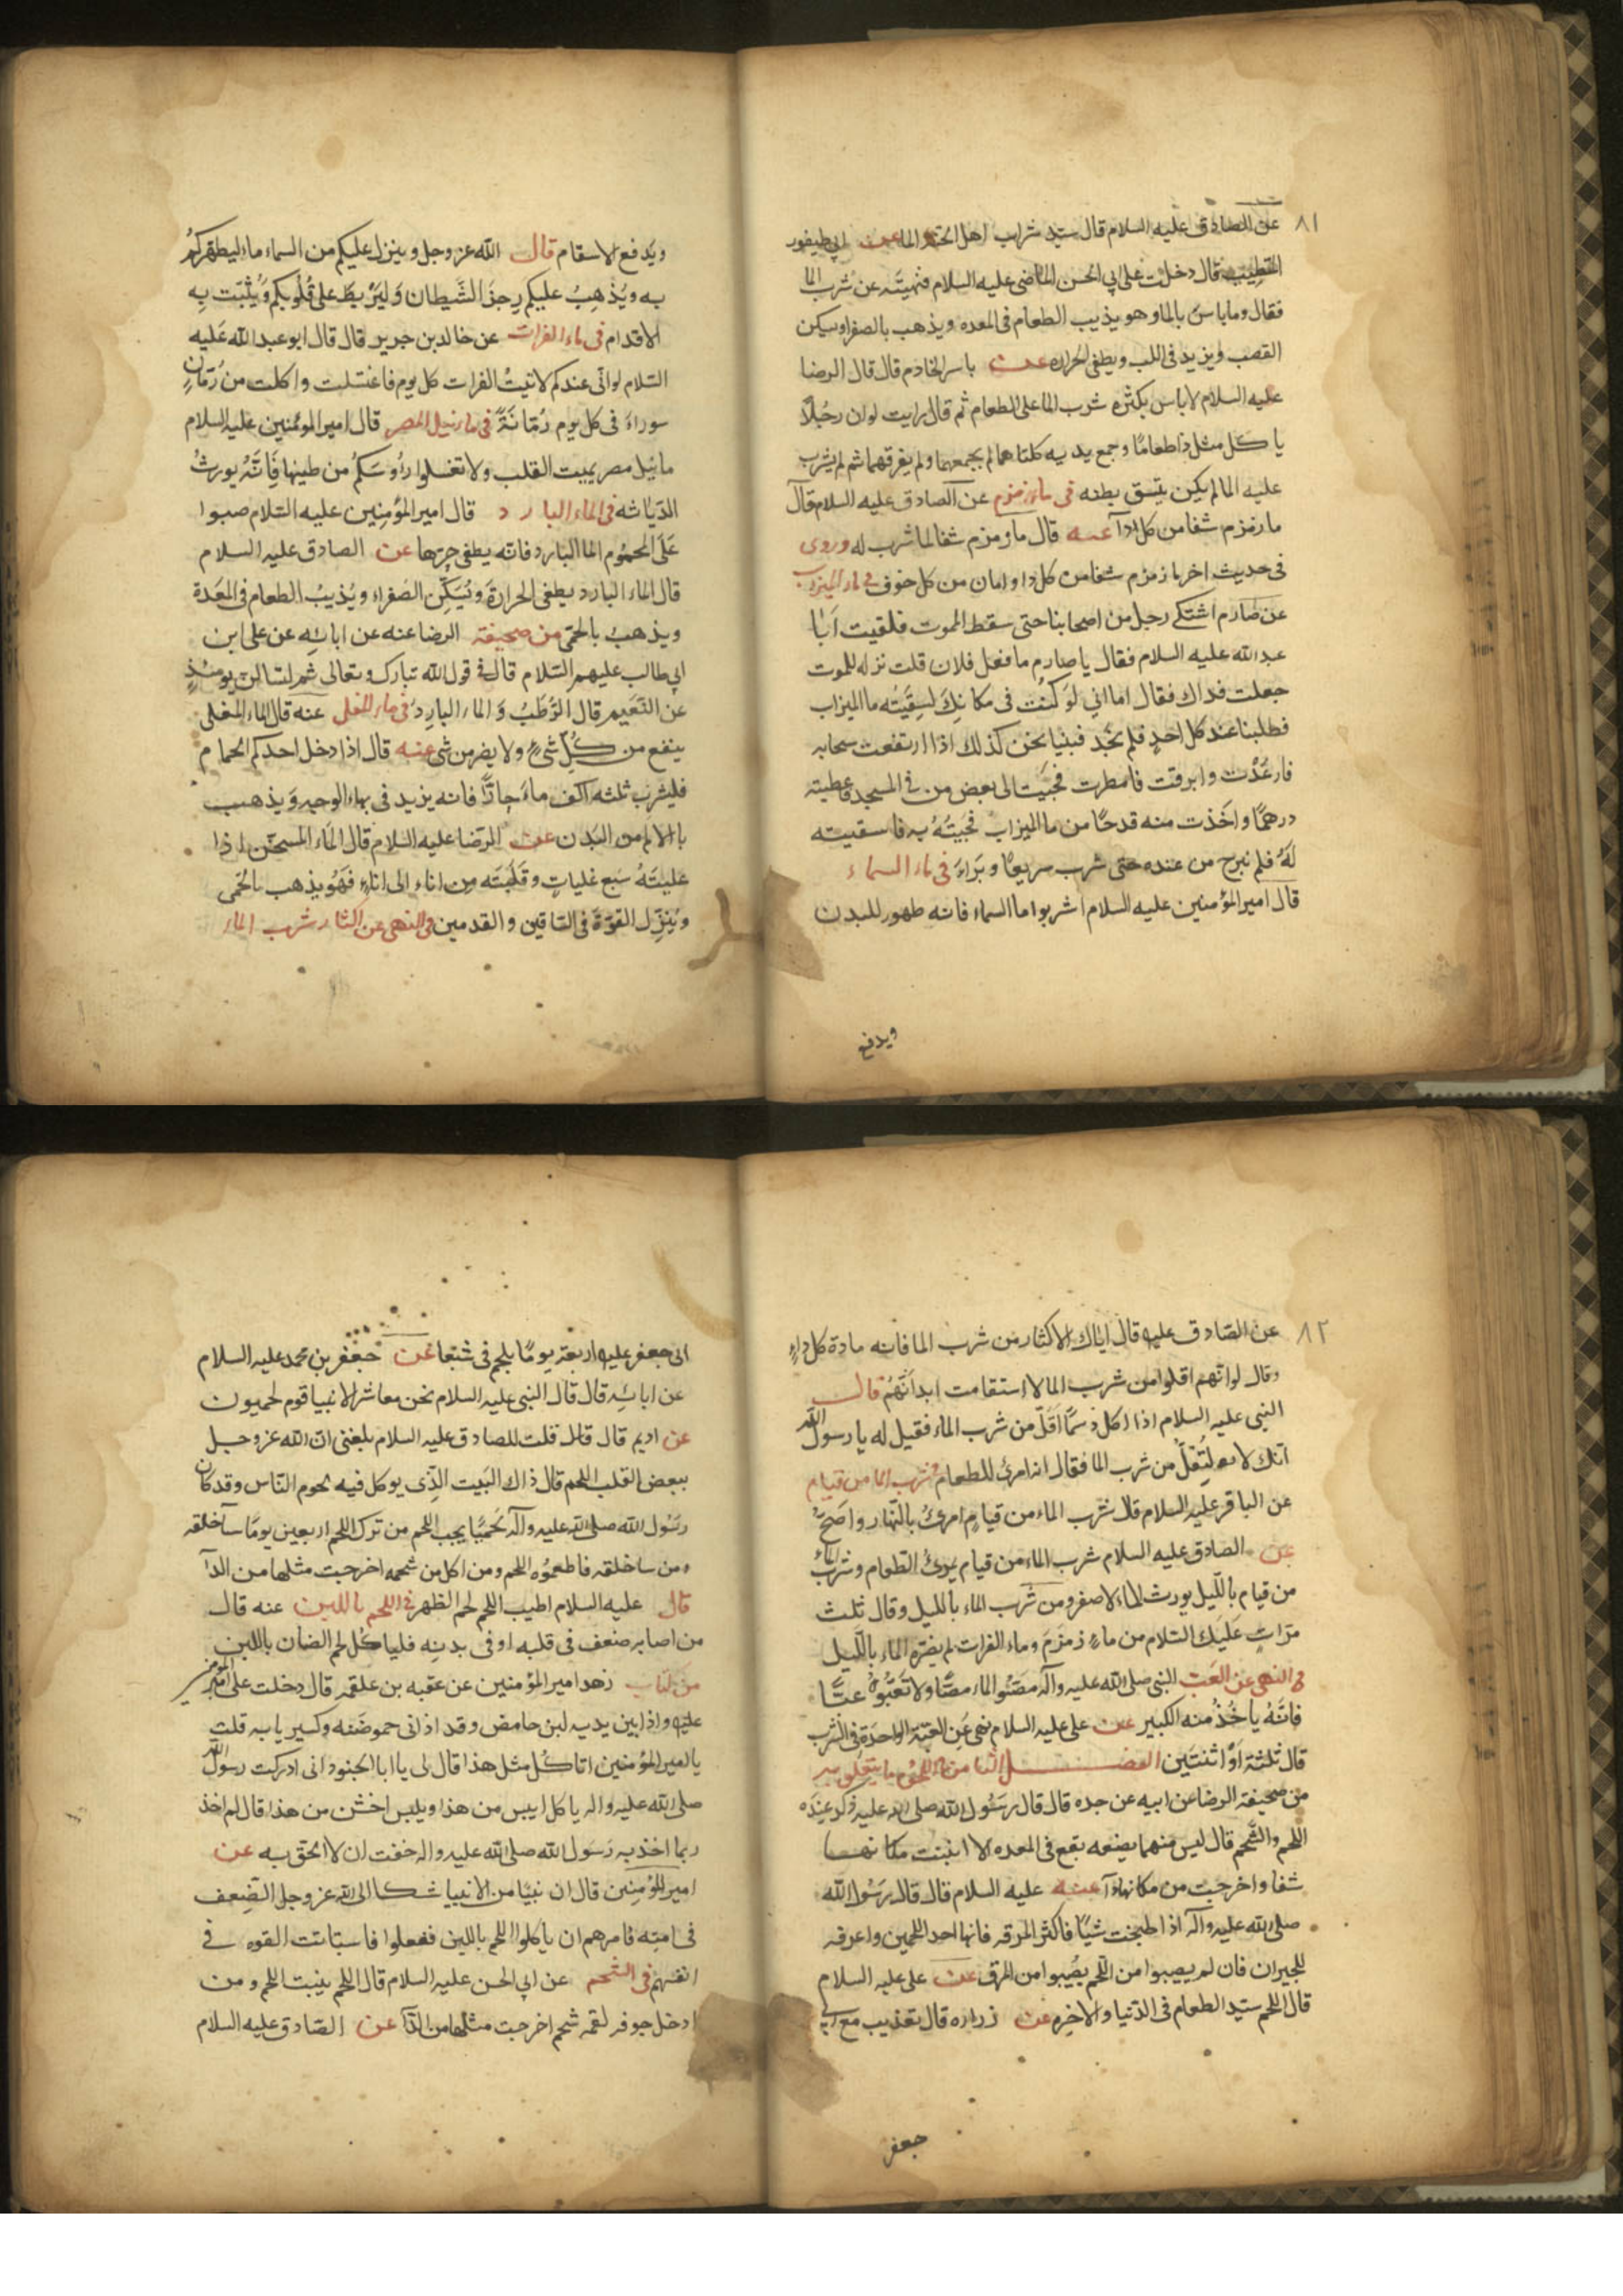 ٨١
عن الصادق عليه السلام قال سيد شراب اهل الجنة الما عن ابي طيفور
المتطبب قال دخلت على ابي الحسن الماضي عليه السلام فنهيته عن شرب الما
فقال وما باس بالما وهو يذيب الطعام في المعده ويذهب بالصفرا ويسكن
الغضب ويزيد في اللب ويطفي الحراره عن ياسر الخادم قال قال الرضا
عليه السلام لا باس بكثره شرب الما على الطعام ثم قال ارايت لو ان رجلًا
ياكل مثل ذا طعامًا وجمع يديه كلتاهما لم يجمعهما ولم يفرقهما ثم لم يشرب
عليه الما لم يكن يتسق بطنه في ماء زمزم عن الصادق عليه السلام قال
ما زمزم شفا من كل داآ عنه قال ما زمزم شفا لما شرب له وروى
في حديث اخر ما زمزم شفا من كل دا وامان من كل خوف في ماء الميزاب
عن صارم اشتكى رجل من اصحابنا حتى سقط للموت فلقيت ابا
عبد الله عليه السلام فقال يا صارم ما فعل فلان قلت نزله للموت
جعلت فداك فقال اما اني لو كنت في مكانك لسقيته ما الميزاب
فطلبنا عند كل احد فلم نجد فبنيا نحن كذلك اذا ارتفعت سحابه
فارعدت وابرقت فامطرت فجيت الى بعض من في المسجد فاعطيته
درهمًا واخذت منه قدحًا من ما الميزاب فجيته به فاسقيته
له فلم نبرح من عنده حتى شرب سريعًا وبراء في ماء السماء
قال امير المؤمنين عليه السلام اشربوا ما السماء فانه طهور للبدن
ويدفع
ويدفع الاسقام قال الله عز وجل وينزل عليكم من السماء ماء ليطهركم
به ويذهب عليكم رجز الشيطان وليربط على قلوبكم ويثبت به
الاقدام في ماء الفرات عن خالد بن جرير قال قال ابو عبد الله عليه
السلام لو اني عندكم لاتيت الفرات كل يوم فاغتسلت واكلت من رمان
سوراء في كل يوم رمانة في ماء نيل المصر قال امير المؤمنين عليه السلام
ما نيل مصر يميت القلب ولا تغسلوا رؤوسكم من طينها فانه يورث
الدياثه في الماء البارد قال امير المؤمنين عليه السلام صبوا
على المحموم الما البارد فانه يطفي حرها عن الصادق عليه السلام
قال الماء البارد يطفي الحرارة ويسكن الصفراء ويذيب الطعام في المعدة
ويذهب بالحمى من صحيفة الرضا عنه عن ابائه عن علي ابن
ابي طالب عليهم السلام قال في قول الله تبارك وتعالى ثم لتسالن يومئذ
عن النعيم قال الرطب والماء البارد في ماء المغلى عنه قال الماء المغلى
ينفع من كل شيء ولا يضر من شي عنه قال اذا دخل احدكم الحمام
فليشرب ثلثه اكف ماء حارًا فانه يزيد في بهاء الوجه ويذهب
بالالم من البدن عن الرضا عليه السلام قال الماء المسخن اذا
غليته سبع غليات وقلبته من اناء الى اناء فهو يذهب بالحمى
وينزل القوة في الساقين والقدمين في النهي عن اكثار شرب الماء
٨٢
عن الصادق عليه قال اياك الاكثار من شرب الما فانه مادة كل داء
وقال لو انهم اقلوا من شرب الما لا استقامت ابدانهم قال
النبي عليه السلام اذا اكل دسمًا اقل من شرب الماء فقيل له يا رسول الله
انك لتقل من شرب الما فقال انه امرئ للطعام في شرب الما من قيام
عن الباقر عليه السلام قال شرب الماء من قيام امرئ بالنهار واصح
عن الصادق عليه السلام شرب الماء من قيام يمرئ الطعام وشرب الماء
من قيام بالليل يورث الماء الاصفر ومن شرب الماء بالليل وقال ثلث
مرات عليك السلام من ماء زمزم وماء الفرات لم يضره الماء بالليل
في النهي عن العب النبي صلى الله عليه وآله مصوا الماء مصًا ولا تعبوه عبًّا
فانه ياخذ منه الكبير عن علي عليه السلام نهى عن العبة الواحدة في الشرب
قال ثلثة او اثنتين الفصل الثامن في اللحوم ما يتعلق به
من صحيفة الرضا عن ابيه عن جده قال قال رسول الله صلى الله عليه ذكر عنده
اللحم والشحم قال ليس منهما بضعه يقع في المعده الا انبتت مكانها
شفا واخرجت من مكانها داآ عنه عليه السلام قال قال رسول الله
صلى الله عليه وآله اذا طبخت شيئًا فاكثر المرقه فانها احد اللحمين واعرفه
للجيران فان لم يصيبوا من اللحم يصيبوا من المرق عن علي عليه السلام
قال اللحم سيد الطعام في الدنيا والاخره عن زراره قال تغذيت مع ابي
جعفر
ابي جعفر عليه اربعة يومًا بلحم في شتعا عن جعفر بن محمد عليه السلام
عن ابائه قال قال النبي عليه السلام نحن معاشر الانبيا قوم لحميون
عن اديم قال قال قلت للصادق عليه السلام بلغني ان الله عز وجل
يبغض القلب اللحم قال ذاك البيت الذي يوكل فيه لحوم الناس وقد كان
رسول الله صلى الله عليه وآله لحميًا يحب اللحم من ترك اللحم اربعين يومًا ساء خلقه
ومن ساخلقه فاطعموه اللحم ومن اكل من شحمه اخرجت مثلها من الدآ
قال عليه السلام اطيب اللحم لحم الظهر في اللحم باللبن عنه قال
من اصابه ضعف في قلبه او في بدنه فلياكل لحم الضان باللبن
من كتاب زهد امير المؤمنين عن عقبه بن علقمه قال دخلت على امير المؤمنين
عليه واذا بين يديه لبن حامض وقد اذاني حموضته وكسير يابه قلت
يا امير المؤمنين اتاكل مثل هذا قال لي يا ابا الجنود اني ادركت رسول الله
صلى الله عليه واله ياكل ايبس من هذا ويلبس اخشن من هذا قال لم اخذ
ربما اخذ به رسول الله صلى الله عليه واله خفت ان لا الحق به عن
امير المؤمنين قال ان نبيًا من الانبيا شكا الى الله عز وجل الضعف
في امته فامرهم ان ياكلوا اللحم باللبن ففعلوا فاستبانت القوه في
انفسهم في الشحم عن ابي الحسن عليه السلام قال اللحم ينبت اللحم ومن
ادخل جوفه لقمه شحم اخرجت مثلها من الدآ عن الصادق عليه السلام